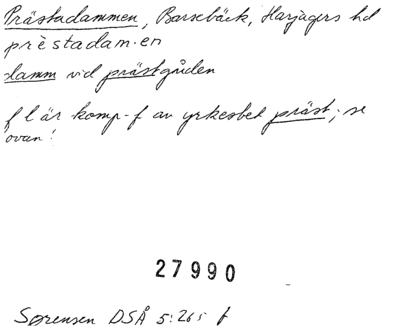 Prästadammen, Barsebäck, Harjagers hd
prèstadam·en
damm vid prästgården
f l är komp-f av yrkesbet präst; se
ovan!
27990
Sørensen DSÅ 5:265 f